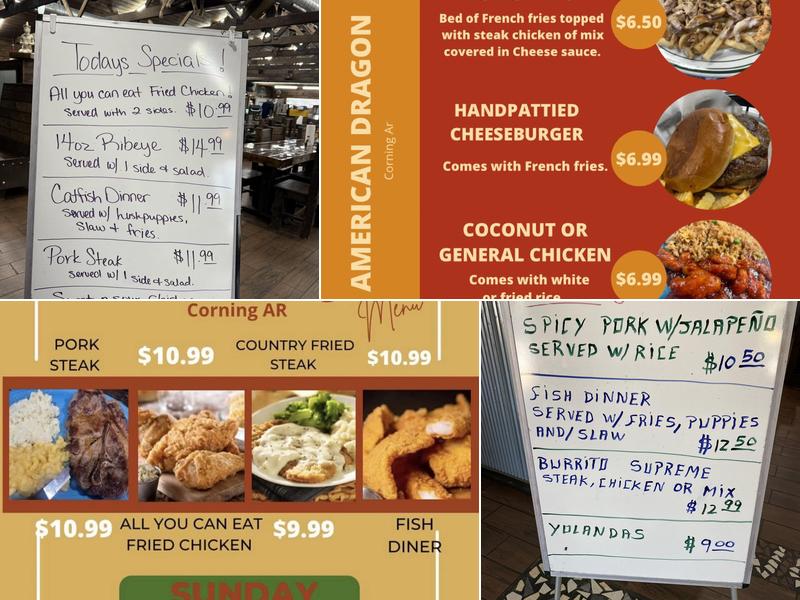 Todays Specials!
All you can eat Fried Chicken!
Served with 2 sides. $10.99
14oz Ribeye $14.99
Served w/ 1 side & salad.
Catfish Dinner $11.99
Served w/ hushpuppies,
Slaw & fries.
Pork Steak $11.99
Served w/ 1 side & salad.
AMERICAN DRAGON
Corning Ar
Bed of French fries topped
with steak chicken of mix
covered in Cheese sauce.
$6.50
HANDPATTIED
CHEESEBURGER
Comes with French fries.
$6.99
COCONUT OR
GENERAL CHICKEN
Comes with white
or fried rice
$6.99
Corning AR
Menu
PORK
STEAK
$10.99
COUNTRY FRIED
STEAK
$10.99
$10.99
ALL YOU CAN EAT
FRIED CHICKEN
$9.99
FISH
DINER
SUNDAY
SPICY PORK W/JALAPEÑO
SERVED W/ RICE
$10.50
FISH DINNER
SERVED W/FRIES, PUPPIES
AND/SLAW
$12.50
BURRITO SUPREME
STEAK, CHICKEN OR MIX
$12.99
YOLANDAS $9.00